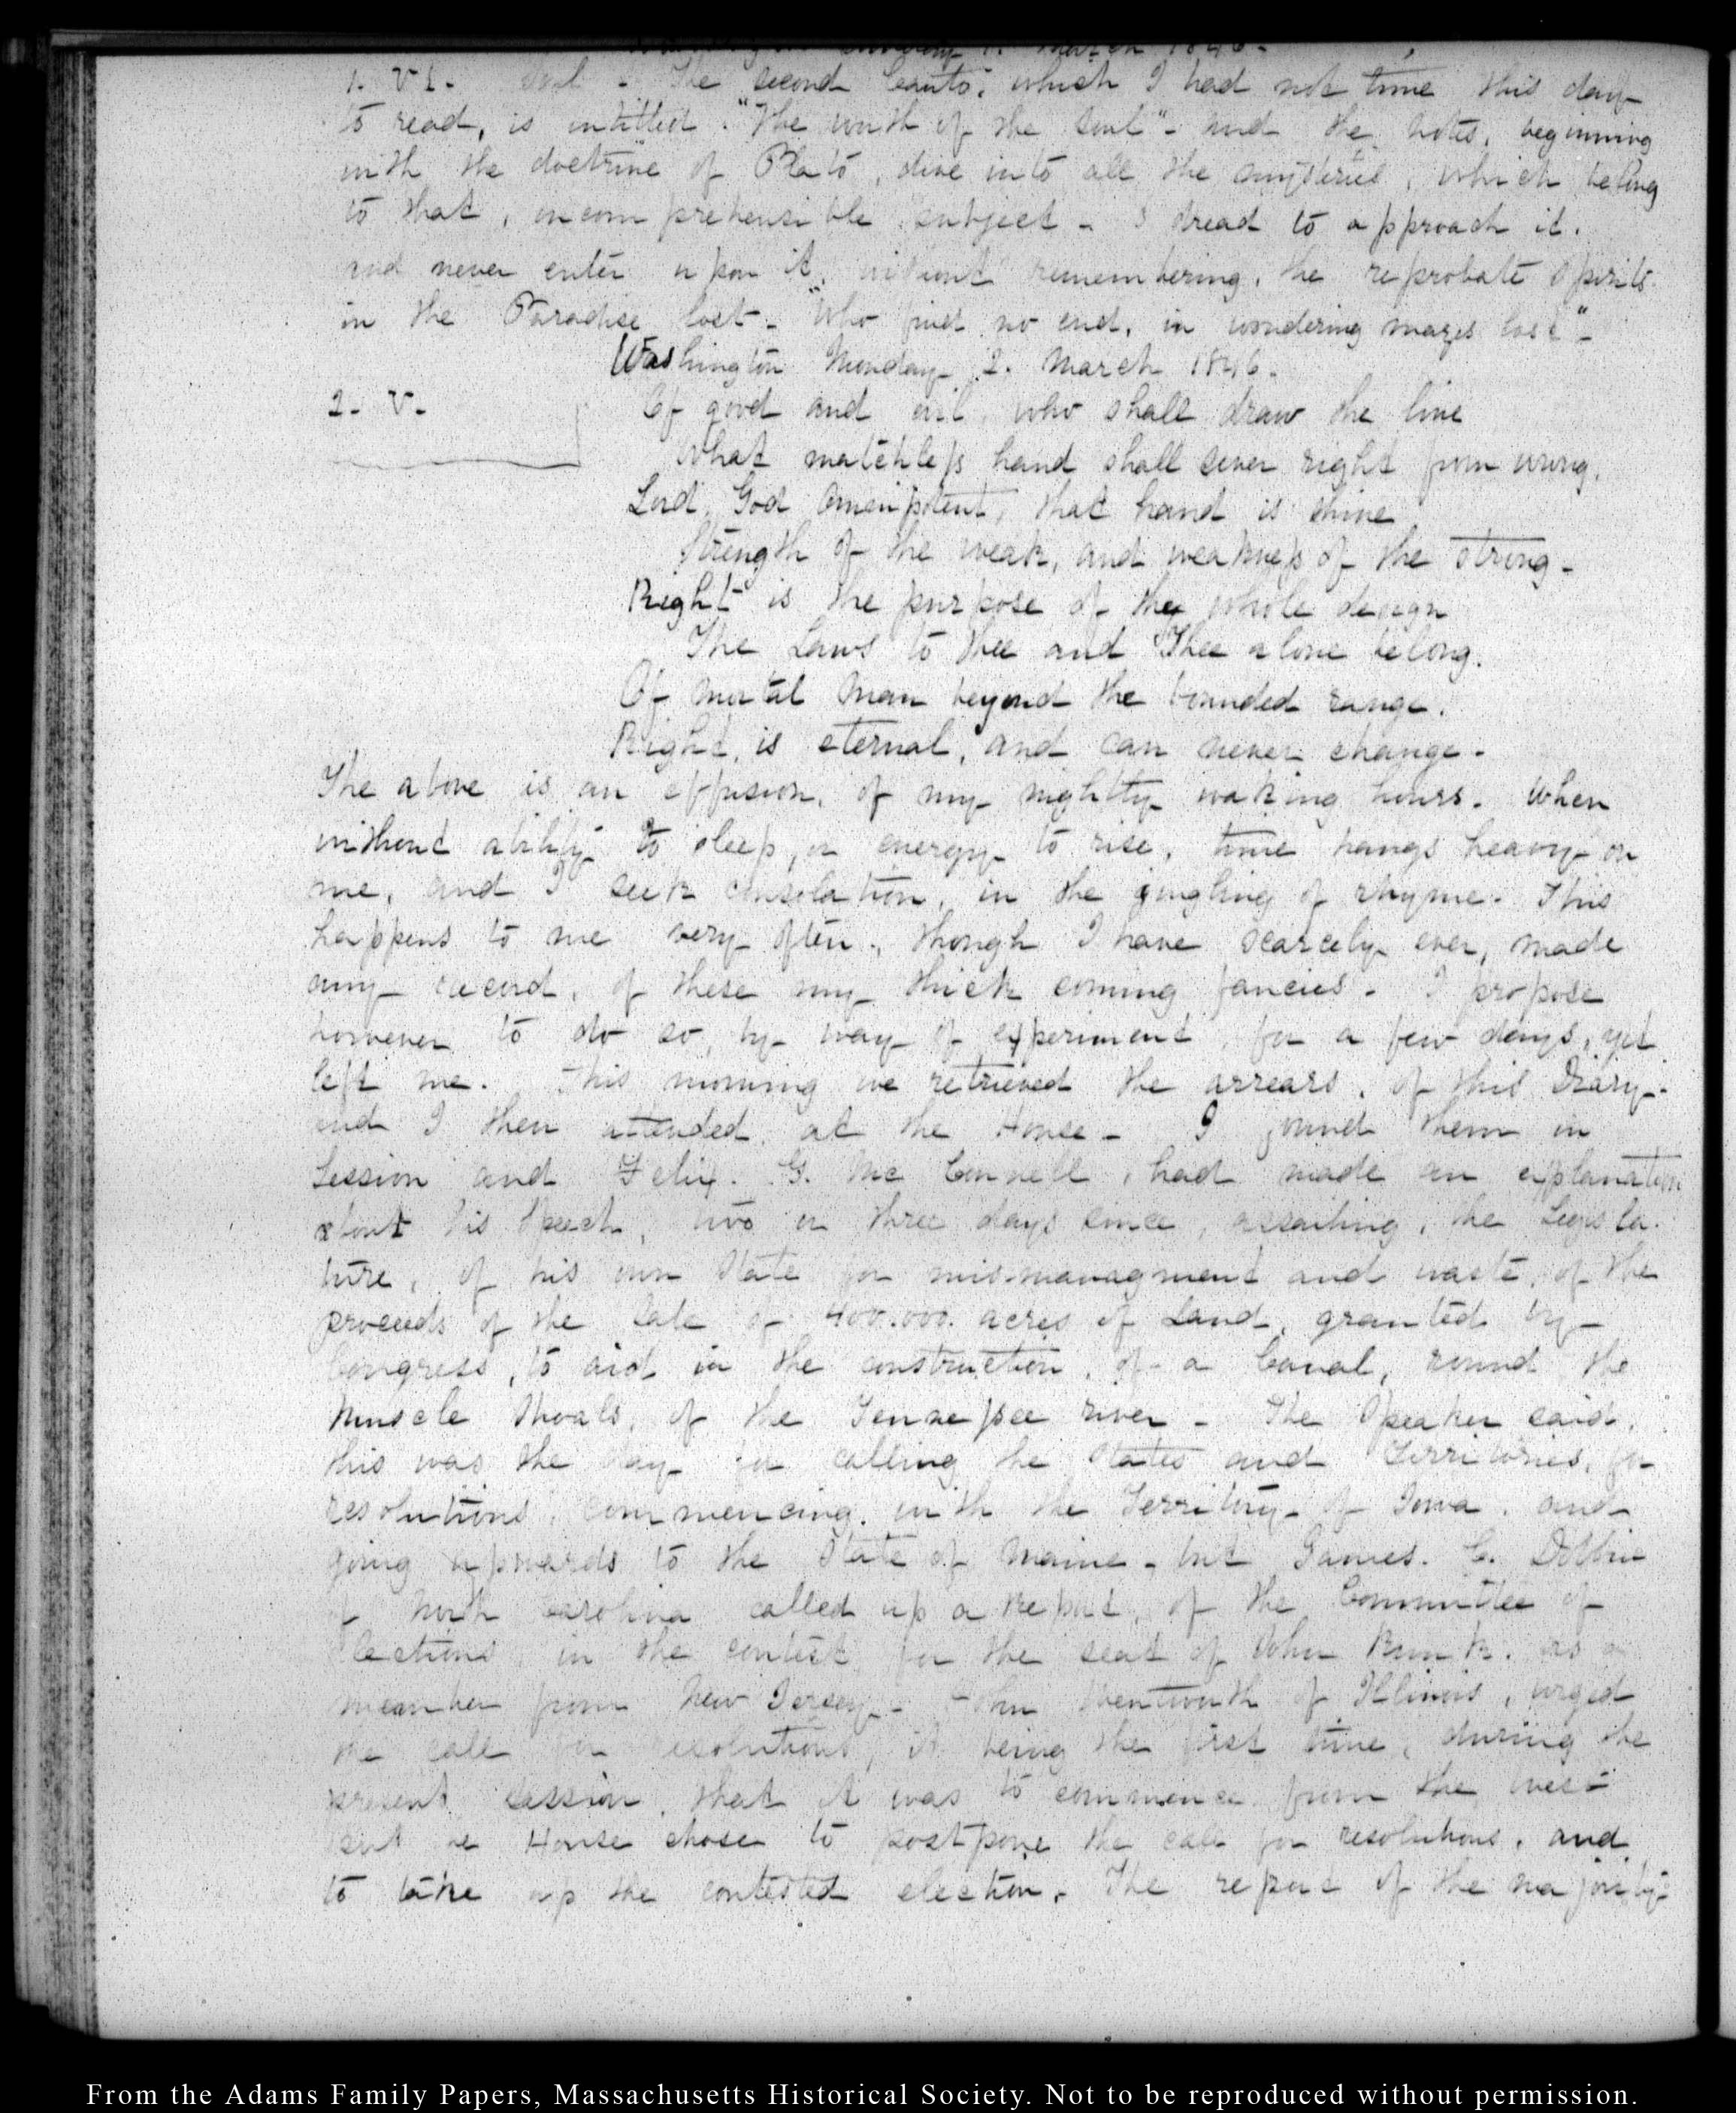 March 1846-
1. VI. Soul - The second Canto, which I had not time this day
to read, is intitled. "The worth of the Soul"- and the notes, beginning
with the doctrine of Plato, dive into all the mysteries, which belong
to that, incomprehensible subject - I dread to approach it.
and never enter upon it, without remembering, the reprobate Spirits
in the Paradise lost- "Who find no end, in wondering mazes lost"-
Washington Monday 2. March 1846-
2- V-
Of good and evil, who shall draw the line
What matchless hand shall sever right from wrong,
Lord God Omnipotent, that hand is thine
Strength of the weak, and weakness of the strong-
Right is the purpose of the whole design
The Laws to thee and Thee alone belong.
Of mortal Man beyond the bounded range.
Right, is eternal, and can never change-
The above is an effusion, of my nightly waking hours. When
without ability to sleep, or energy to rise, time hangs heavy on
me, and I seek consolation, in the jingling of rhyme. This
happens to me very often, though I have scarcely ever, made
any record, of these my thick coming fancies- I propose
however to do so, by way of experiment, for a few days, yet
left me. This morning we retrieved the arrears, of this Diary-
and I then attended at the House- I found them in
Session and Felix. G. McConnell, had made an explanation
about his Speech, two or three days since, assailing, the Legisla-
ture, of his own State for mismanagment and waste, of the
proceeds of the Sale of 400.000. acres of Land, granted by
Congress, to aid in the construction, of a Canal, round the
Muscle Shoals, of the Tennessee river- The Speaker said,
this was the day for calling the States and Territories, for
resolutions, commencing, with the Territory of Iowa, and
going upwards to the State of Maine- but James. C. Dobbin
of North Carolina called up a report, of the Committee of
Elections, in the contest, for the seat of John Runk. as a
member from New Jersey- John Wentworth of Illinois, urged
the call for resolutions, it being the first time, during the
present session, that it was to commence from the west
but the House chose to postpone the call for resolutions, and
to take up the contested election. The report of the majority
From the Adams Family Papers, Massachusetts Historical Society. Not to be reproduced without permission.